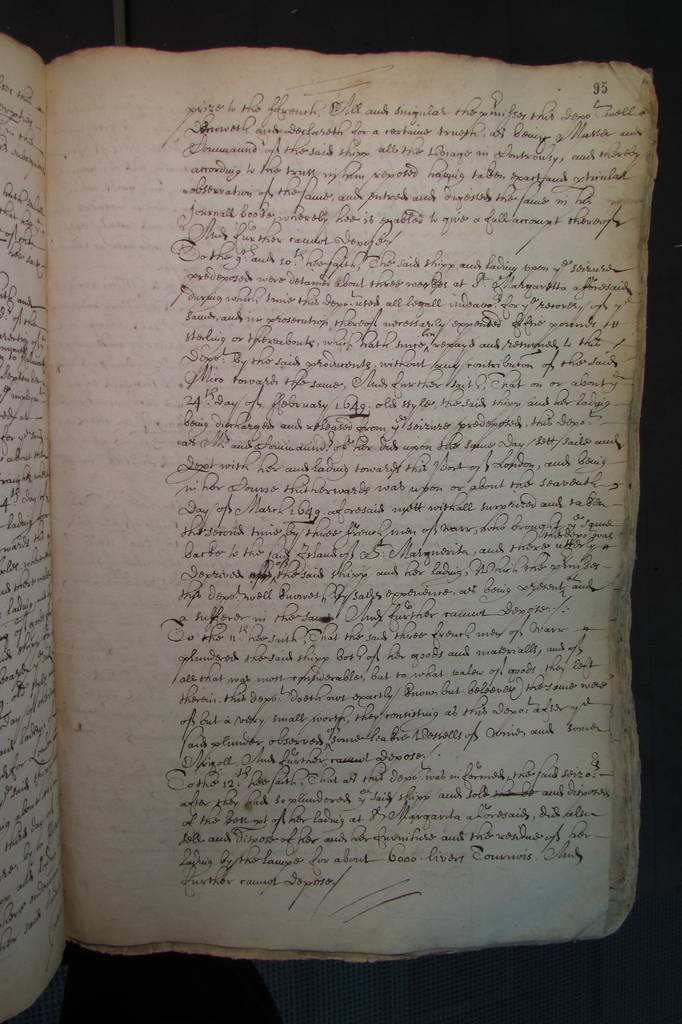 95
prize to the ffrench. All and singular the premisses this depot well
knoweth and declareth for a certaine trueth, as being Master and
Commaundr of the said shipp all the Voiage in Controversy, and thereby
according to the trust in him reposed having taken exact and pticular
observation of the same, and entred and digested the same in his
Journall booke, whereby hee is enabled to give a full accompt thereof
And further cannot depose./
To the 9th and 10th hee saith, The said shipp and lading upon ye seizure
predeposed were detained about three weekes at St Margaretta aforesaid
during which time this depot used all legall indeavor for ye recovery of ye
same, and in prosecution thereof necessarily expended fiftie pounds
sterling or thereabouts, which hath since bin repayd and returned to this
depot by the said producents, without any contribution of the said
Mico towards the same, And further saith, That on or about ye
24th day of ffebruary 1649 old stile, the said shipp and her lading
being discharged and released from ye seizure predeposed, this depot
as Mr and Commaundr of her did upon the same day sett saile and
dept with her and lading towards this Port of London, and being
in her Course thitherwards was upon or about the seaventh
day of March 1649 aforesaid mett withall surprized and taken
the second time by three ffrench men of warr, who brought ye same
backe to the said Island of St Marguerita, and there this depot was utterly
deprived of the said shipp and her lading, Which the premisses
this depot well knoweth by sad experience, as being present at and
a sufferer in the same And further cannot depose./:
To the 11th hee saith, That the said three ffrench men of Warr
plundered the said shipp both of her goods and materialls, and of
all that was most considerable, but to what valew of goods they left
therein this depot doeth not exactly know, but beleeveth the same were
of but a very small worth, they consisting as this depot after ye
said plunder observed of some leakie Vessells of Wine, and some
Argoll, And further cannot depose./
To the 12th hee saith, That as this depot was informed, the said seizors
after they had so plundered ye said shipp and sold and disposed
of the best pt of her lading at St Margarita aforesaid, did alsoe
sell and dispose of her and her furniture and the residue of her
lading by the lumpe for about 6000 livers Tournois. And
further cannot depose/